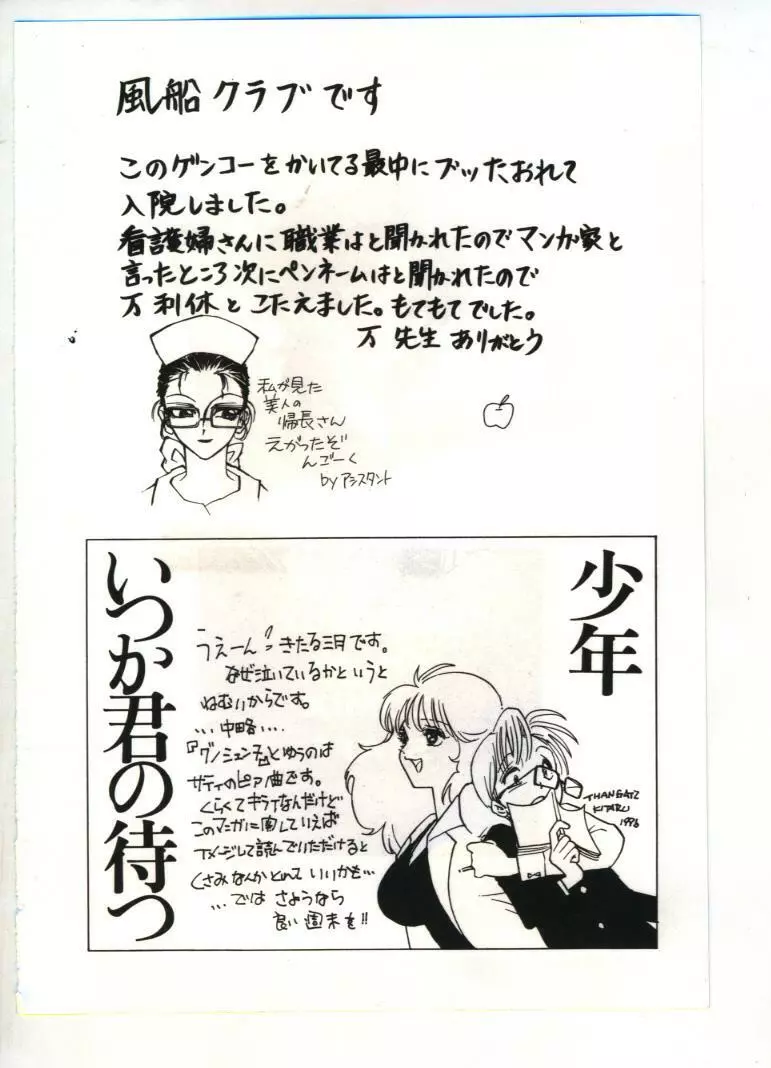 風船クラブです
このゲンコーをかいてる最中にブッたおれて
入院しました。
看護婦さんに職業はと聞かれたのでマンガ家と
言ったところ次にペンネームはと聞かれたので
万利休とこたえました。もてもてでした。
万先生ありがとう
私が見た
美人の
婦長さん
えがったぞ
んごーく
byアシスタント
少年
いつか君の待つ
うえーん!きたる三月です。
なぜ泣いているかというと
ねむいからです。
…中略…
とゆうのは
サティのピアノ曲です。
くらくてキライなんだけど
このマンガに関していえば
イメージして読んでいただけると
くさみなんかとれて いいかも…
…では さようなら
良い週末を!!
THANGATZ
KITARU
1996